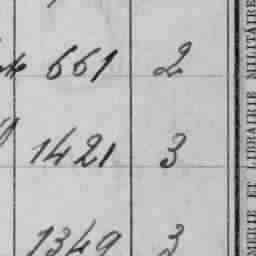 661 2
1421 3
1349 3
MERIE ET LIBRAIRIE MILITAIRE